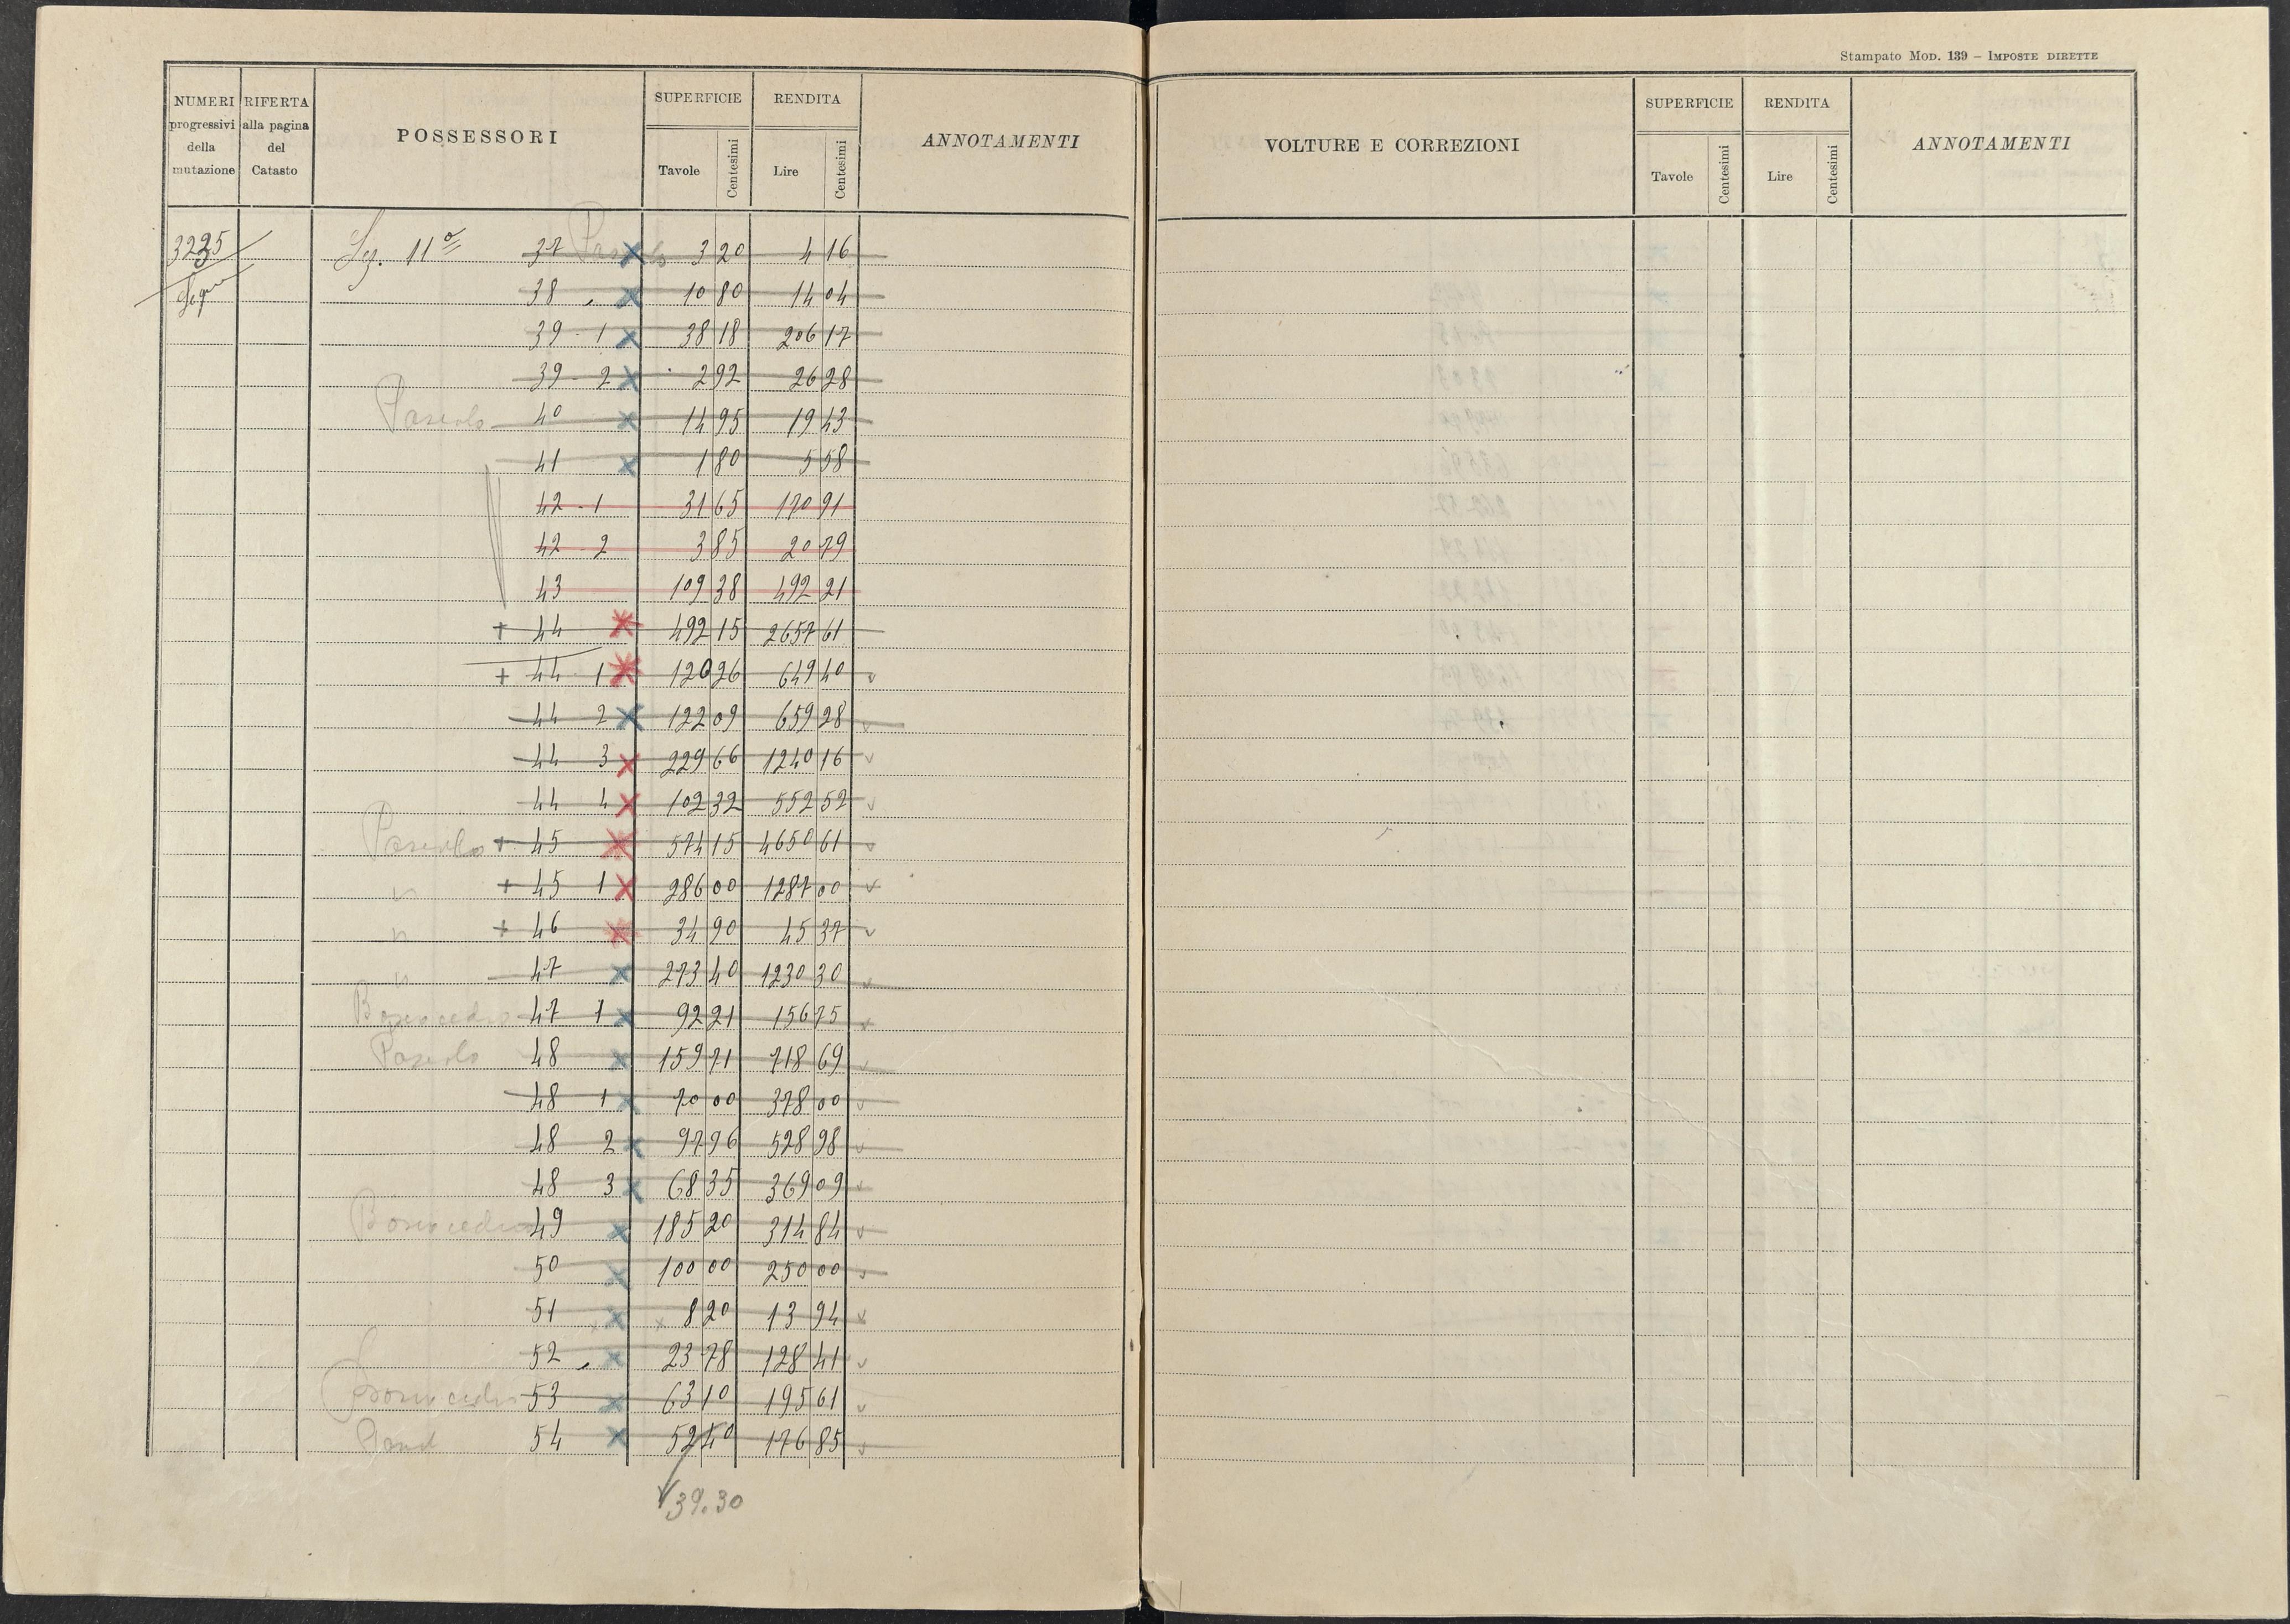 Stampato Mod. 139 – Imposte dirette
NUMERI progressivi della mutazione | RIFERTA alla pagina del Catasto | POSSESSORI | SUPERFICIE Tavole Centesimi | RENDITA Lire Centesimi | ANNOTAMENTI | VOLTURE E CORREZIONI | SUPERFICIE Tavole Centesimi | RENDITA Lire Centesimi | ANNOTAMENTI
3235 Sez. 11º 37 Pascolo 3 20 4 16
segue 38 10 80 14 04
39 - 1 38 18 206 17
39 - 2 2 92 26 28
Pascolo 40 14 95 19 43
41 1 80 5 58
42 - 1 31 65 170 91
42 - 2 3 85 20 79
43 109 38 492 21
+ 44 492 15 2657 61
+ 44 1 120 26 649 40
44 2 122 09 659 28
44 3 229 66 1240 16
44 4 102 32 552 52
Pascolo + 45 574 15 4650 61
" + 45 1 286 00 1287 00
" + 46 34 90 45 37
" 47 273 40 1230 30
47 1 92 21 156 75
Pascolo 48 159 71 718 69
48 1 70 00 378 00
48 2 97 96 528 98
48 3 68 35 369 09
49 185 20 314 84
50 100 00 250 00
51 8 20 13 94
52 23 78 128 41
53 63 10 195 61
54 52 40 176 85
39.30